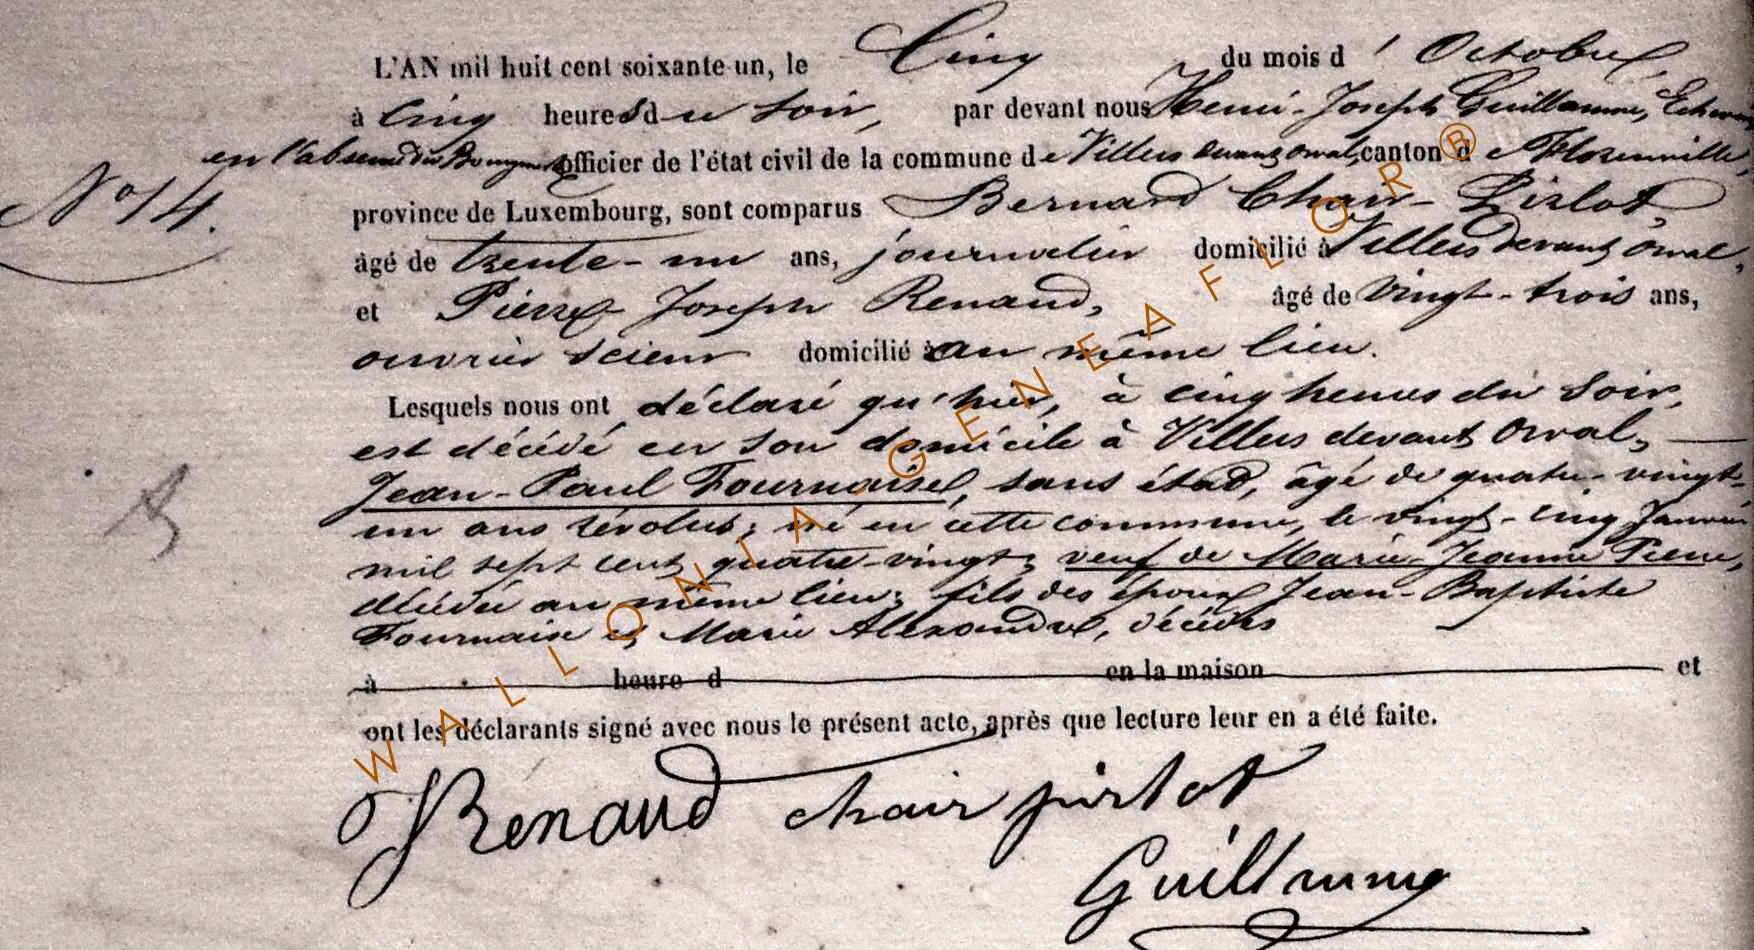 L'AN mil huit cent soixante-un, le Cinq du mois d' Octobre,
à Cinq heures du soir, par devant nous Henri-Joseph Guillaume, Echevin
en l'absence du Bourgmestre officier de l'état civil de la commune de Villers devant orval, canton de Florenville,
N° 14.
province de Luxembourg, sont comparus Bernard Chair-Pirlot,
âgé de trente-un ans, journalier domicilié à Villers devant Orval,
et Pierre-Joseph Renaud, âgé de vingt-trois ans,
ouvrier scieur domicilié au même lieu.
Lesquels nous ont déclaré qu'hier, à cinq heures du soir,
est décédé en son domicile à Villers devant Orval,
Jean-Paul Fournaise, sans état, âgé de quatre-vingt-
un ans révolus; né en cette commune, le vingt-cinq Janvier
mil sept cent quatre-vingt; veuf de Marie-Jeanne Pierre,
décédée au même lieu; fils des époux Jean-Baptiste
Fournaise et Marie Alexandre, décédés
à heure d en la maison et
ont les déclarants signé avec nous le présent acte, après que lecture leur en a été faite.
Renaud chair pirlot
Guillaume
WALLONIA GENEAFLOR®